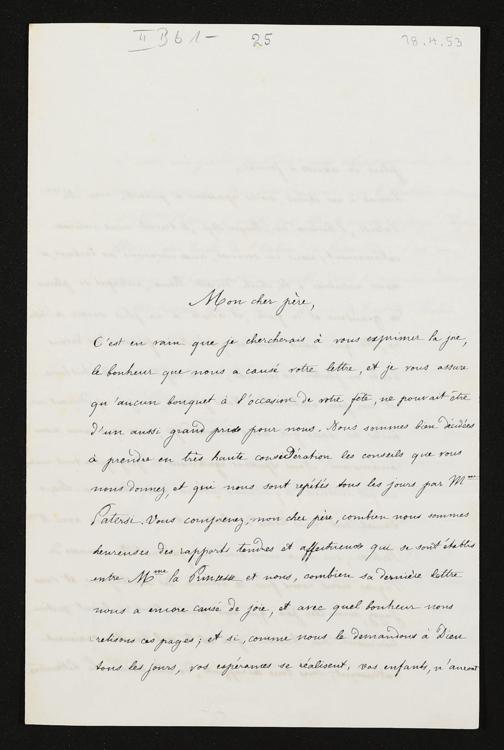 II B b 1 – 25 28.4.53
Mon cher père,
C'est en vain que je chercherais à vous exprimer la joie,
le bonheur que nous a causé votre lettre, et je vous assure
qu'aucun bouquet à l'occasion de votre fête, ne pouvait être
d'un aussi grand prix pour nous. Nous sommes bien décidées
à prendre en très haute considération les conseils que vous
nous donnez, et qui nous sont répétés tous les jours par Mme
Patersi. Vous comprenez, mon cher père, combien nous sommes
heureuses des rapports tendres et affectueux qui se sont établis
entre Mme la Princesse et nous, combien sa dernière lettre
nous a encore causé de joie, et avec quel bonheur nous
relisons ces pages; et si, comme nous le demandons à Dieu
tous les jours, vos espérances se réalisent, vos enfants, n'auront